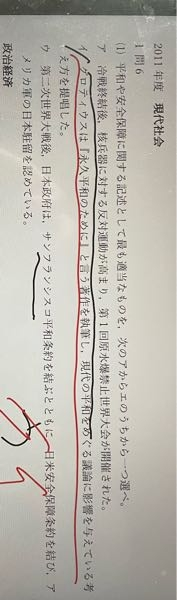 2011年度 現代社会
1 問6
(1) 平和や安全保障に関する記述として最も適当なものを、次のアからエのうちから一つ選べ。
ア 冷戦終結後、核兵器に対する反対運動が高まり、第1回原水爆禁止世界大会が開催された。
イ グロティウスは『永久平和のために』と言う著作を執筆し、現代の平和をめぐる議論に影響を与えている考
え方を提唱した。
ウ 第二次世界大戦後、日本政府は、サンフランシスコ平和条約を結ぶとともに、日米安全保障条約を結び、ア
メリカ軍の日本駐留を認めている。
政治経済